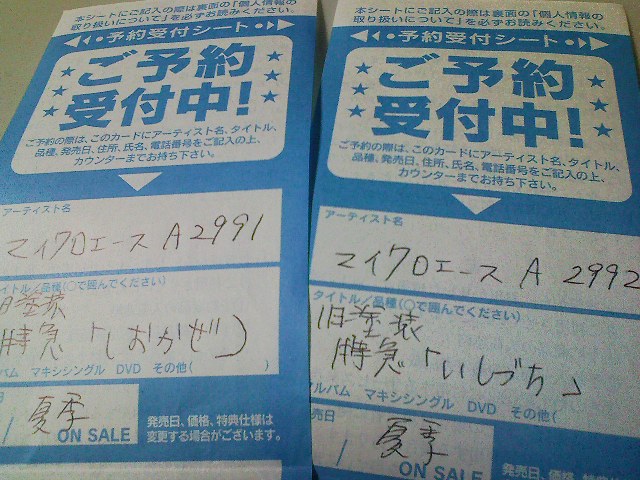 本シートにご記入の際は裏面の「個人情報の
取り扱いについて」を必ずお読みください。
予約受付シート
ご予約
受付中!
ご予約の際は、このカードにアーティスト名、タイトル、
品種、発売日、住所、氏名、電話番号をご記入の上、
カウンターまでお持ち下さい。
アーティスト名
マイクロエース A2991
タイトル/品種(○で囲んでください)
旧塗装
特急「しおかぜ」
バム マキシシングル DVD その他( )
日
/
夏季
ON SALE
発売日、価格、特典仕様は
変更する場合がございます。
本シートにご記入の際は裏面の「個人情報の
取り扱いについて」を必ずお読みください。
予約受付シート
ご予約
受付中!
ご予約の際は、このカードにアーティスト名、タイトル、
品種、発売日、住所、氏名、電話番号をご記入の上、
カウンターまでお持ち下さい。
アーティスト名
マイクロエース A 2992
タイトル/品種(○で囲んでください)
旧塗装
特急「いしづち」
アルバム マキシシングル DVD その他(
発売日
/
夏季
ON SALE
発売日、価格、特
変更する場合が